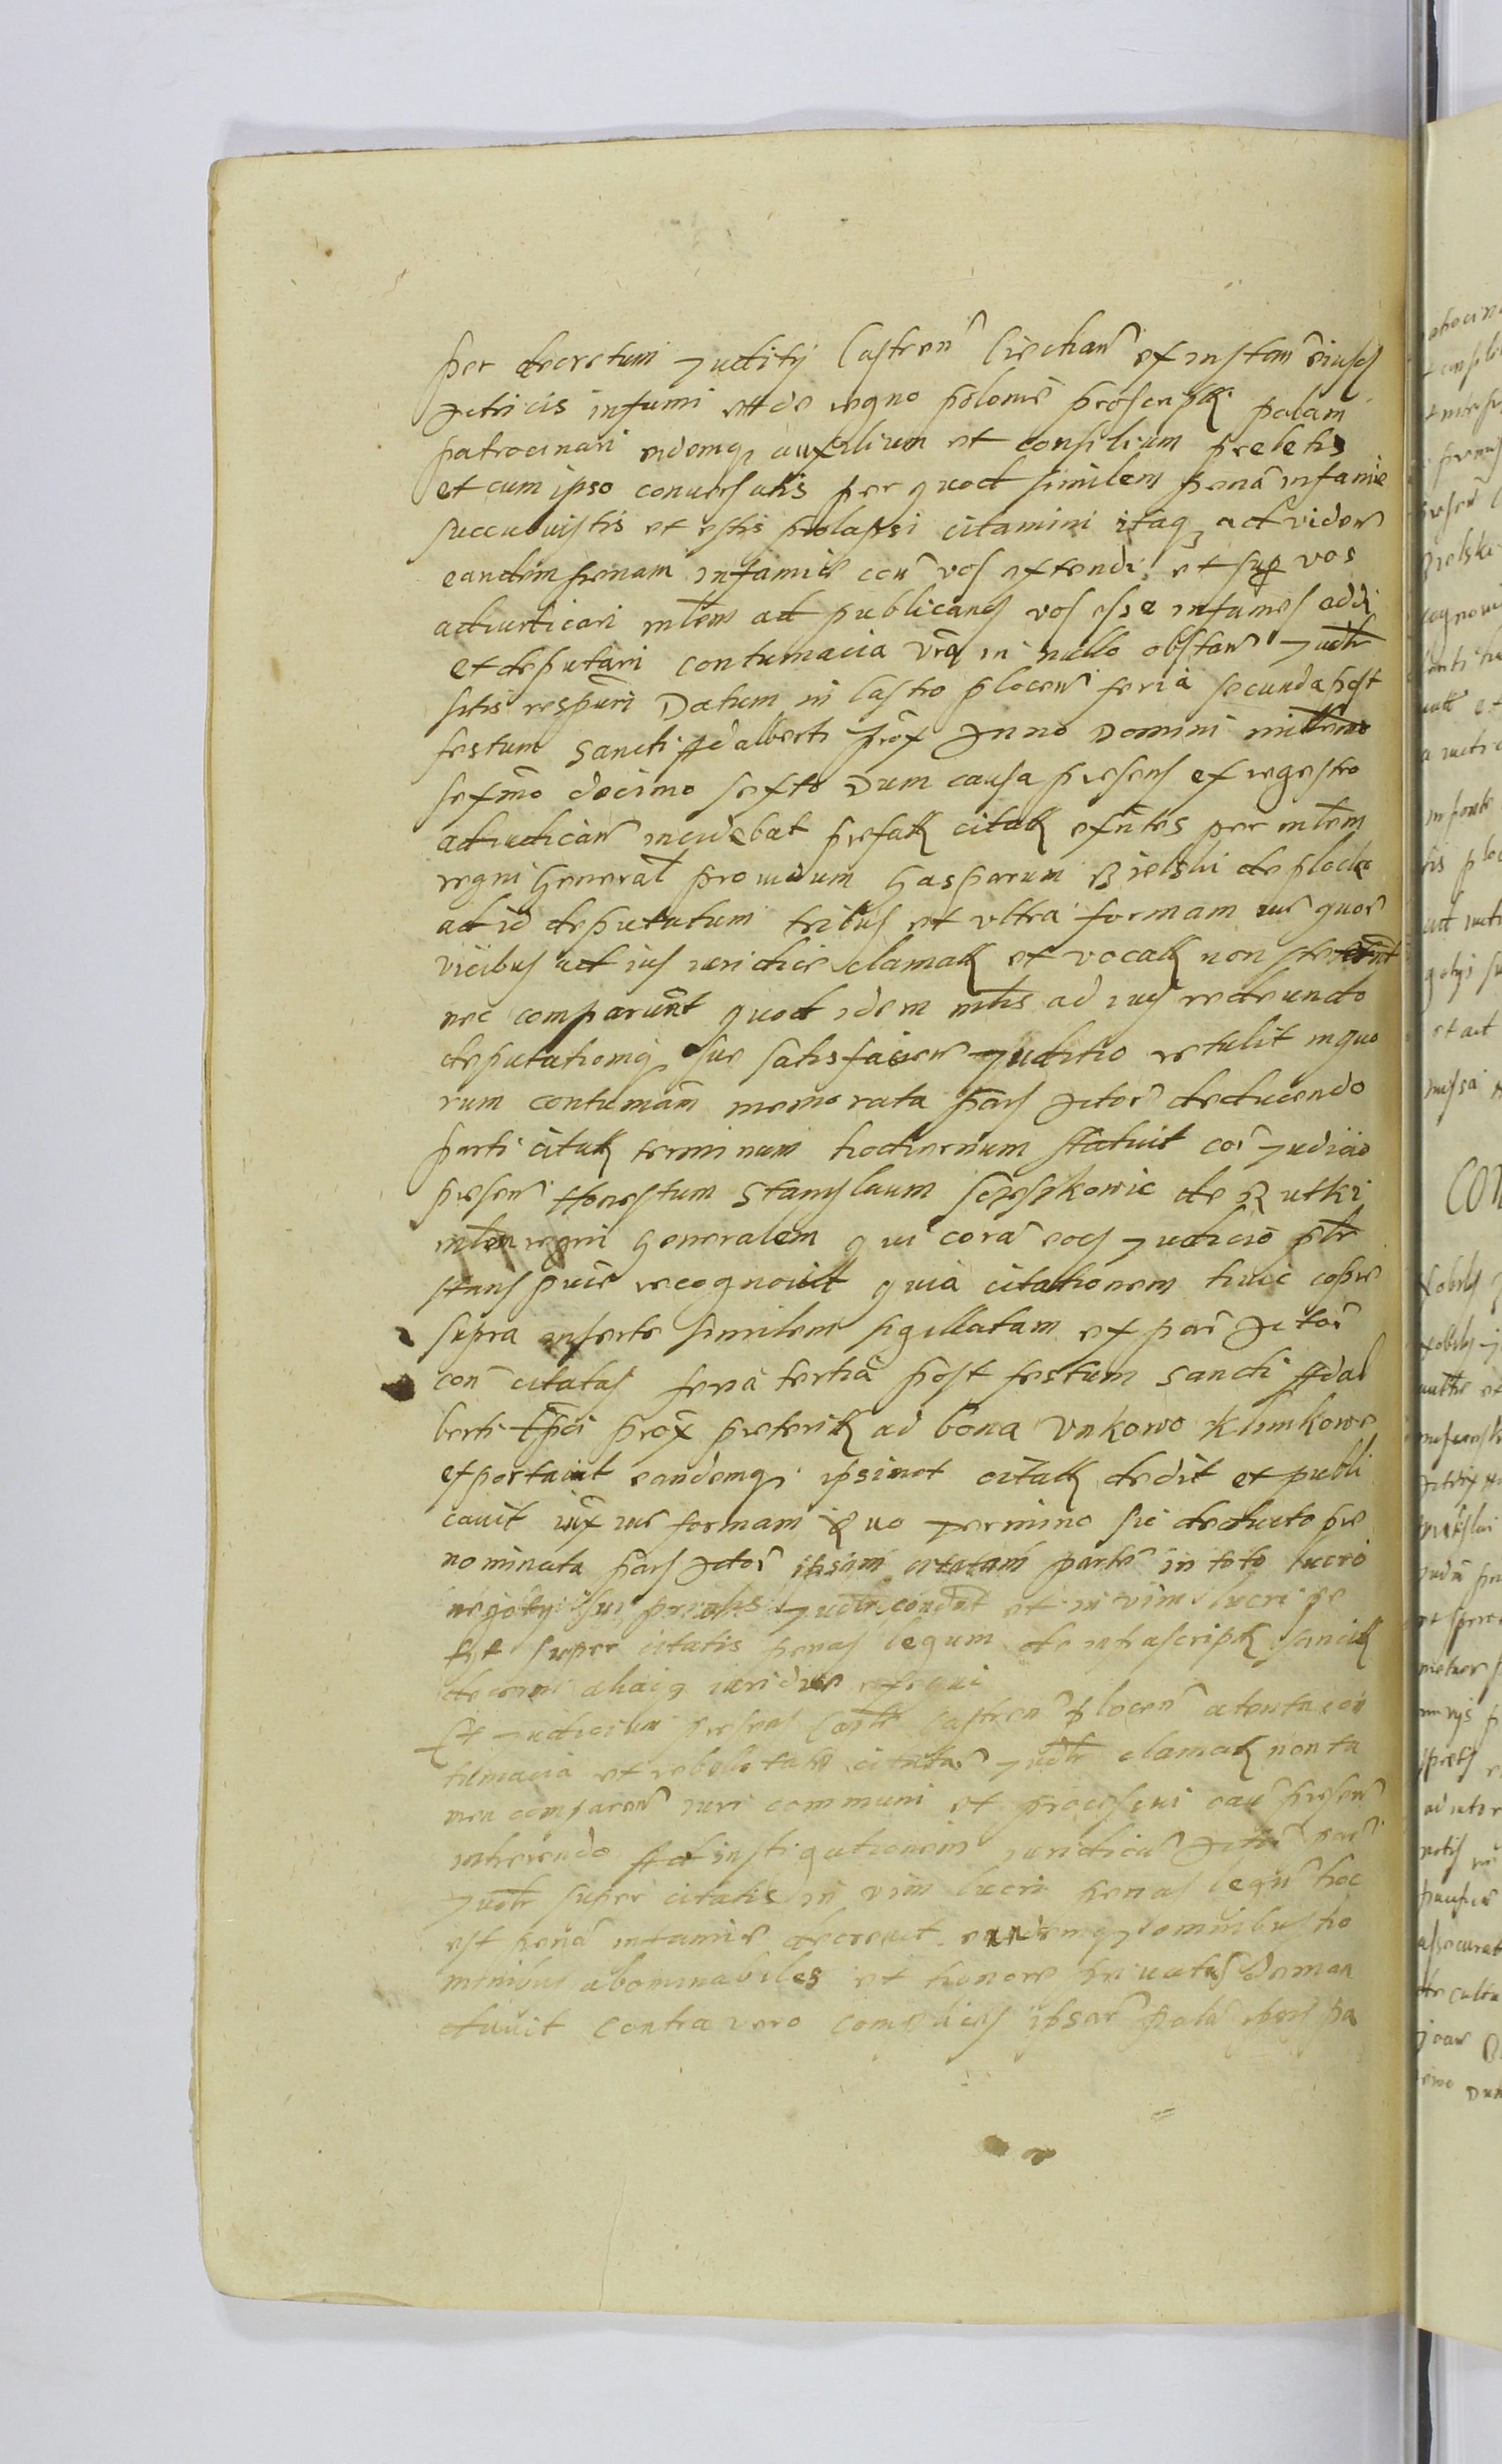 per decretum Juditij Castren Ciechan ex instan eiusd
Actricis infami et de regno polonie proscriptk palam
patrocinari eidemq auxilium et consilium prebetis
et cum ipso conversatis per quod similem pena infamie
succubuistis et estis prolapsi citamini itaq ad viden
eandem penam infamie con vos extendi et sup vos
adiudicari mlem ad publicand vos esse infames addi
et deputari contumacia vra in nullo obstan Judtr
sitis respuri Datum in Castro plocen feria secunda post
festum Sancti Adalberti prox Anno Domini millemo
sexmo decimo sexto Dum causa presens ex regestro
adiudican incidebat prefatk citatk exntes per mlem
regni General providum Gasparum Bielski de plocko
ad id deputatum tribus et ultra formam iur quor
vicibus ad ius iuridice clamatk et vocatk non steterunt
nec comparunt quod idem mlis ad ius redeundo
deputationiq sue satisfacien Juditio retulit in quo
rum contumam memorata pars Actor deducendo
parti citatk terminum hodiernum statuit cor Judicio
presen Honestum Stanislaum Sczesikowic de Rutki
mlem regni Generalem qui cora eod Judicio pltr
stans puie recognovit quia citationem huic copie
supra inserte similem sigillatam ex par Actor
con citatas feria tertia post festum Sancti Adal
berti Epci prox preteritk ad bona Unkowo Klimkowe
exportavit eandemq ipsimet citatk dedit et publi
cavit iux iur formam Quo termino sic deducto pre
nominata pars Actor ipsam citatam parte in toto lucro
negotij sui Judtr condnt et in vim lucri pe
tyt super citatis penas legum de infrascriptk sancitk
decerni aliaq iuridice exequi
Et Judicium presens Captr Castren plocen atenta con
tumacia et rebellitate citatar Judtr clamatk non ta
men comparen iuri communi et processui cau presen
inherendo Ad instigationem iuridica Actor par
Judtr super citatis in vim lucri penas legu hoc
est pena infamie decrevit easdemq omnibus ho
minibus abominabiles et honore privatas deman
davit contra vero complices ipsar pala pa